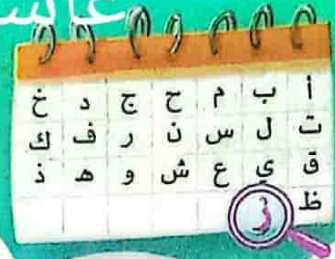 أ ب م ح ج د خ
ت ل س ن ر ف ك
ق ي ع ش و هـ ذ
ظ ز